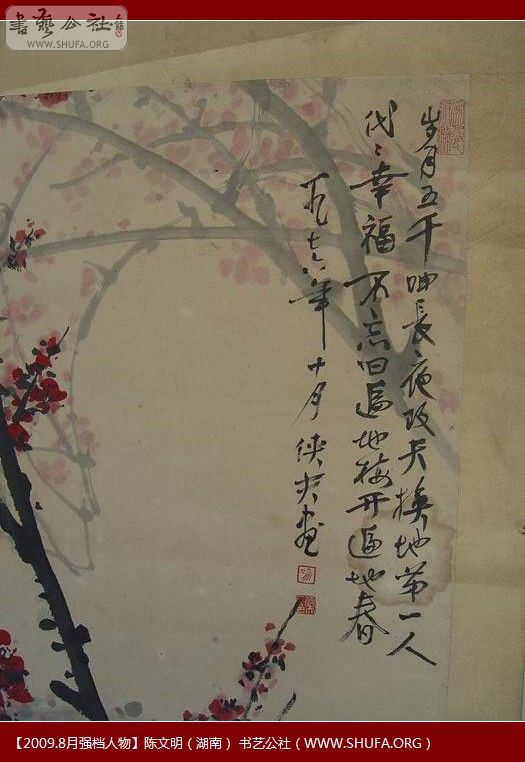 書藝公社
WWW.SHUFA.ORG
岁月五千呻長夜改天换地第一人
代〻幸福不忘旧遍地梅开遍地春
一九七六年十月侠夫画
【2009.8月强档人物】陈文明（湖南） 书艺公社（WWW.SHUFA.ORG）